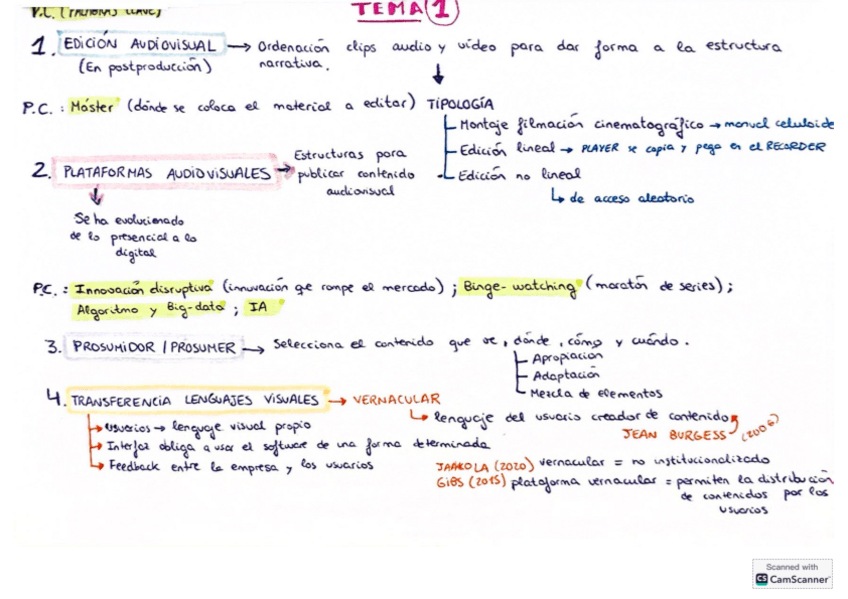 P.C. (PALABRAS CLAVE)
TEMA 1
1. EDICIÓN AUDIOVISUAL → Ordenación clips audio y vídeo para dar forma a la estructura
(En postproducción) narrativa.
P.C. : Máster (dónde se coloca el material a editar) TIPOLOGÍA
Montaje filmación cinematográfico → manual celuloide
Edición lineal → PLAYER se copia y pega en el RECORDER
Edición no lineal
↳ de acceso aleatorio
2. PLATAFORMAS AUDIOVISUALES → Estructuras para
publicar contenido
audiovisual
Se ha evolucionado
de lo presencial a lo
digital
P.C. : Innovación disruptiva (innovación qe rompe el mercado) ; Binge-watching (maratón de series) ;
Algoritmo y Big-data ; IA
3. PROSUMIDOR / PROSUMER → Selecciona el contenido que ve, dónde, cómo y cuándo.
Apropiación
Adaptación
Mezcla de elementos
4. TRANSFERENCIA LENGUAJES VISUALES → VERNACULAR
↳ lenguaje del usuario creador de contenido
JEAN BURGESS (2006)
Usuarios → lenguaje visual propio
Interfaz obliga a usar el software de una forma determinada
Feedback entre la empresa y los usuarios
JAAKOLA (2020) vernacular = no institucionalizado
GIBS (2015) plataforma vernacular = permiten la distribución
de contenidos por los
usuarios
Scanned with
CS CamScanner